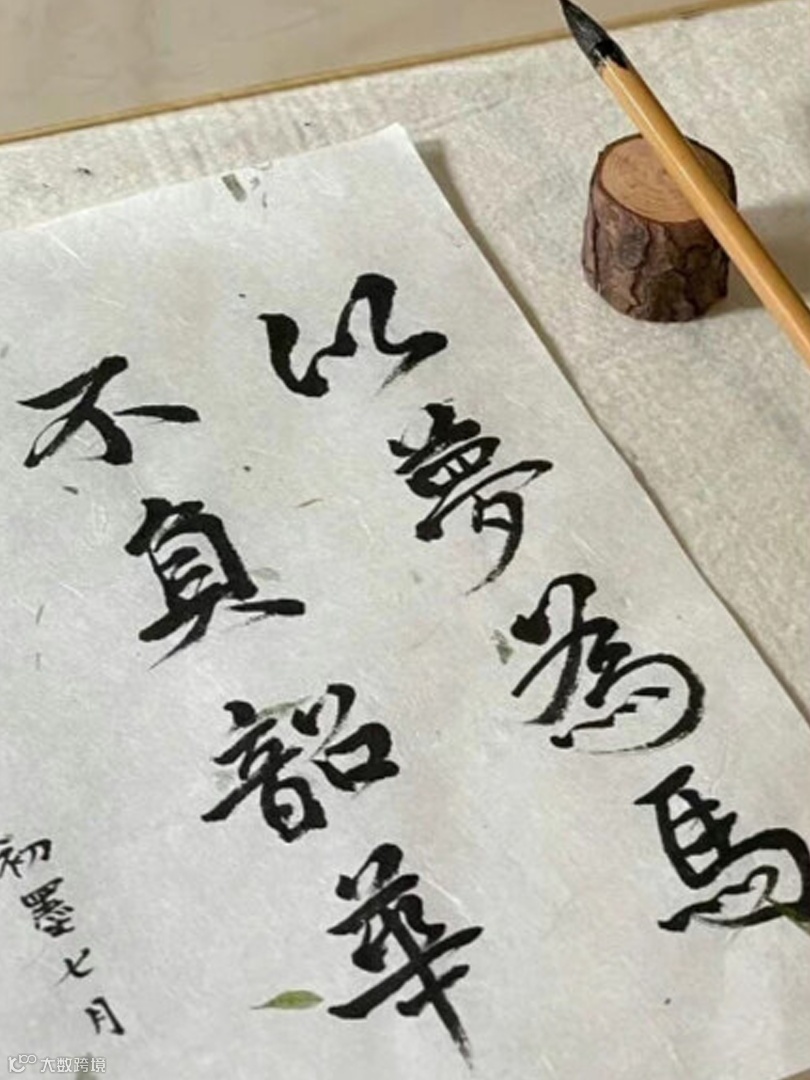 以夢為馬
不負韶華
初墨七月
大数跨境